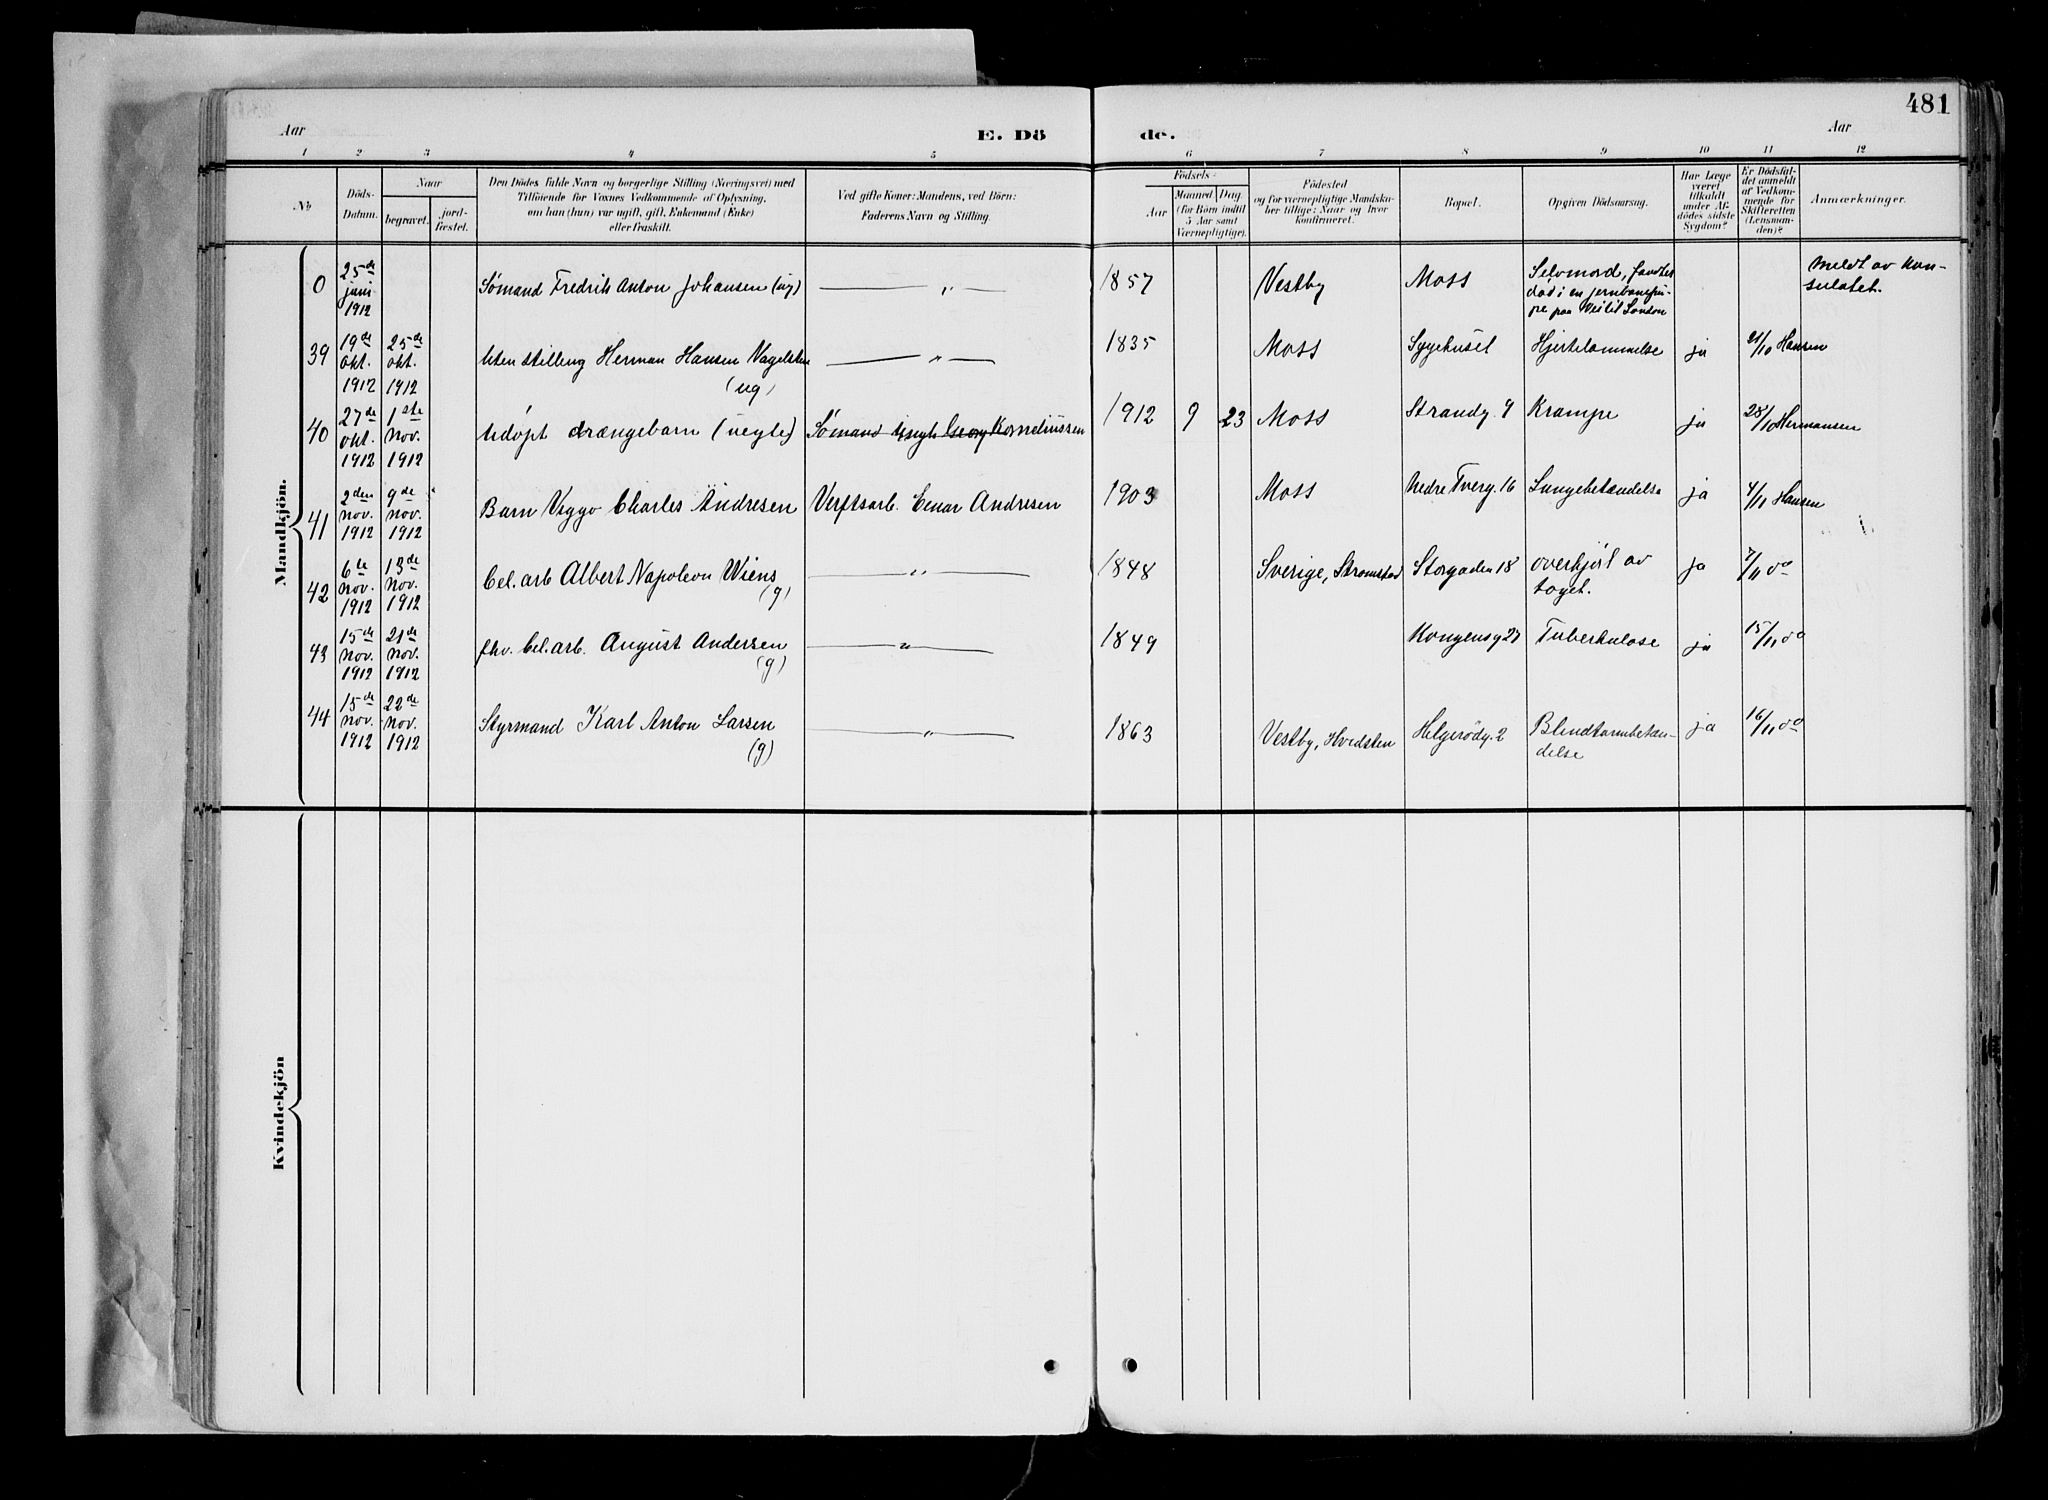 481
Aar
E. Dö
de.
Aar
1 2 3 4 5 6 7 8 9 10 11 12
No
Döds-Datum.
Naar
begravet.
jord-fæstet.
Den Dödes fulde Navn og borgerlige Stilling (Næringsvei) med
Tilföiende for Voxnes Vedkommende af Oplysning,
om han (hun) var ugift, gift, Enkemand (Enke)
eller fraskilt.
Ved gifte Koner: Mandens, ved Börn:
Faderens Navn og Stilling.
Födsels-
Aar
Maaned Dag
(for Börn indtil
5 Aar samt
Værnepligtige).
Födested
og for værnepligtige Mandskaber tillige: Naar og hvor
konfirmeret.
Bopæl.
Opgiven Dödsaarsag.
Har Læge
været
tilkaldt
under Afdödes sidste
Sygdom?
Er Dödsfaldet anmeldt
af Vedkommende for
Skifteretten
(Lensmanden)?
Anmærkninger.
Mandkjön.
0 25de juni 1912 Sømand Fredrik Anton Johansen (ug) — " — 1857 Vestby Moss Selvmord, fandtes død i en jernbanekupe paa vei til London meldt av konsulatet.
39 19de okt. 1912 25de okt. 1912 Uten stilling Herman Hansen Vagelsten (ug) — " — 1835 Moss Sygehuset Hjertelammelse ja 21/10 Hansen
40 27de okt. 1912 1ste nov. 1912 Udøpt drængebarn (uegte) Sømand Georg Kornelinssen 1912 9 23 Moss Strandg. 9 Krampe ja 28/10 Hermansen
41 2den nov. 1912 9de nov. 1912 Barn Viggo Charles Andresen Verftsarb. Einar Andresen 1903 Moss Nedre Tverg. 16 Lungebetændelse ja 4/11 Hansen
42 6te nov. 1912 13de nov. 1912 Cel. arb Albert Napoleon Wiens (g) — " — 1848 Sverige, Strømstad Storgaden 18 overkjørt av toget. ja 7/11 do
43 15de nov. 1912 21de nov. 1912 fhv. Cel. arb. August Andersen (g) — " — 1849 Kongensg 27 Tuberkulose ja 15/11 do
44 15de nov. 1912 22de nov. 1912 Styrmand Karl Anton Larsen (g) — " — 1863 Vestby, Hvidsten Helgerødg. 2 Blindtarmbetændelse ja 16/11 do
Kvindekjön